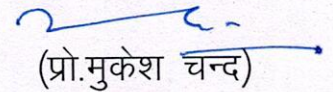 (प्रो.मुकेश चन्द)